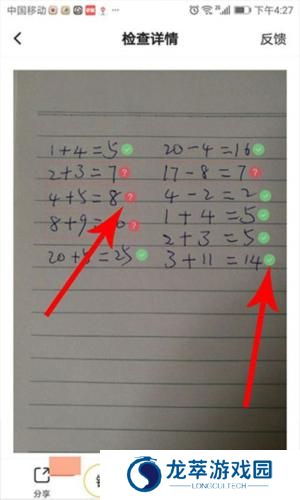 中国移动 下午4:27
检查详情 反馈
1+4=5 20-4=16
2+3=7 17-8=7
4+5=8 4-2=2
8+9= 1+4=5
2+3=5
20+5=25 3+11=14
分享
龙萃游戏园
LONGCUITECH.COM